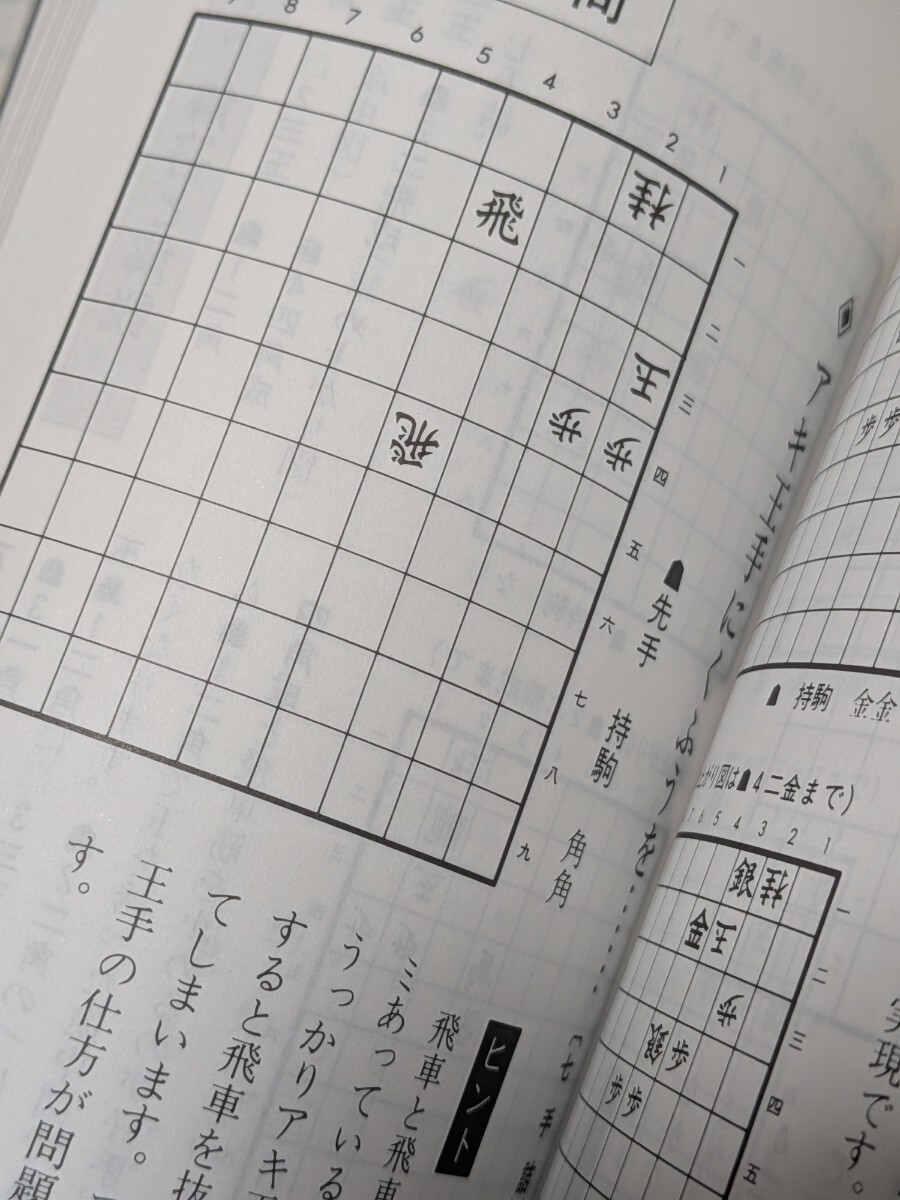 問
8 7 6 5 4 3 2 1
一
二
三
四
五
六
七
八
九
桂
飛
王
飛
歩
歩
アキ王手にくふうを……
先手 持駒 角角
七手
ヒント
飛車と飛車
ミあっている
うっかりアキ王
すると飛車を抜
てしまいます。
王手の仕方が問題
す。
歩歩
持駒 金金
がり図は 4二金まで)
7 6 5 4 3 2 1
一
二
三
四
五
銀桂
金王
歩
銀歩
歩歩
実現です。